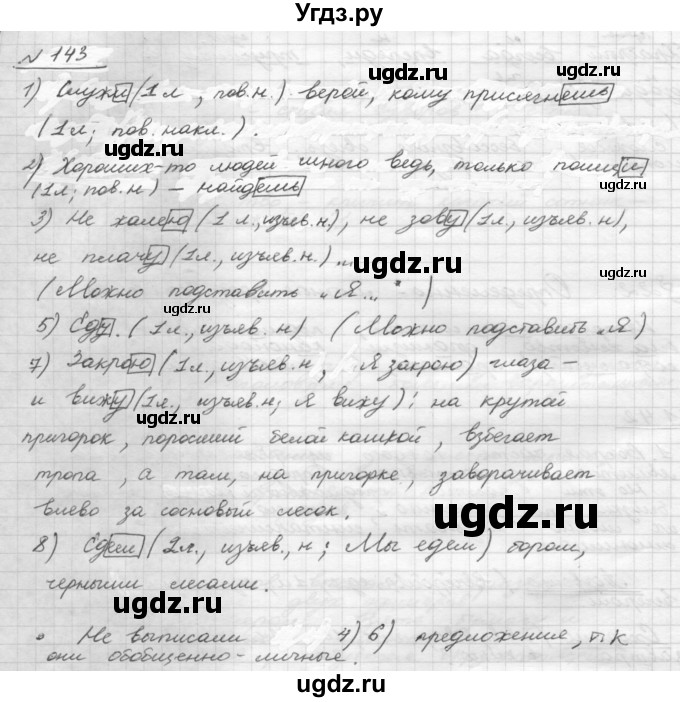 Угдз.ру
№ 143
1) Служи (1 л, пов.н.) верой, кому присягнешь
(1 л; пов. накл.).
угдз.ru
2) Хороших-то людей много ведь, только поищи
(1л; пов.н) – найдешь
3) Не жалею (1 л., изъяв.н.), не зову (1л., изъяв.н),
не плачу (1л., изъяв.н.)...
(Можно подставить „Я..." )
5) Еду. (1л., изъяв.н) (Можно подставить „Я)
7) Закрою (1л., изъяв.н, Я закрою) глаза –
и вижу (1л., изъяв.н; я вижу): на крутой
пригорок, поросший белой кашкой, взбегает
тропа, а там, на пригорке, заворачивает
влево за сосновый лесок.
8) Едем (2л., изъяв., н; Мы едем) бором,
черными лесами.
• Не выписали 4) 6) предложения, т к
они обобщенно-личные.
ugdz.ru